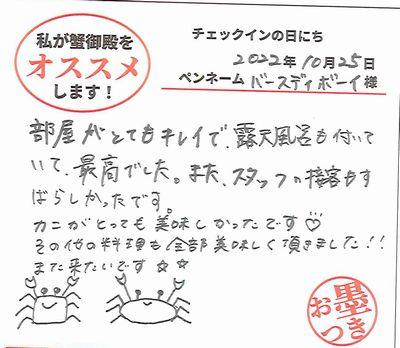 私が蟹御殿を
オススメ
します！
チェックインの日にち
2022年10月25日
ペンネーム バースディボーイ様
部屋がとてもキレイで、露天風呂も付いて
いて、最高でした。また、スタッフの接客もす
ばらしかったです。
カニがとっても美味しかったです♡
その他の料理も全部美味しく頂きました！！
また来たいです☆☆
お墨つき